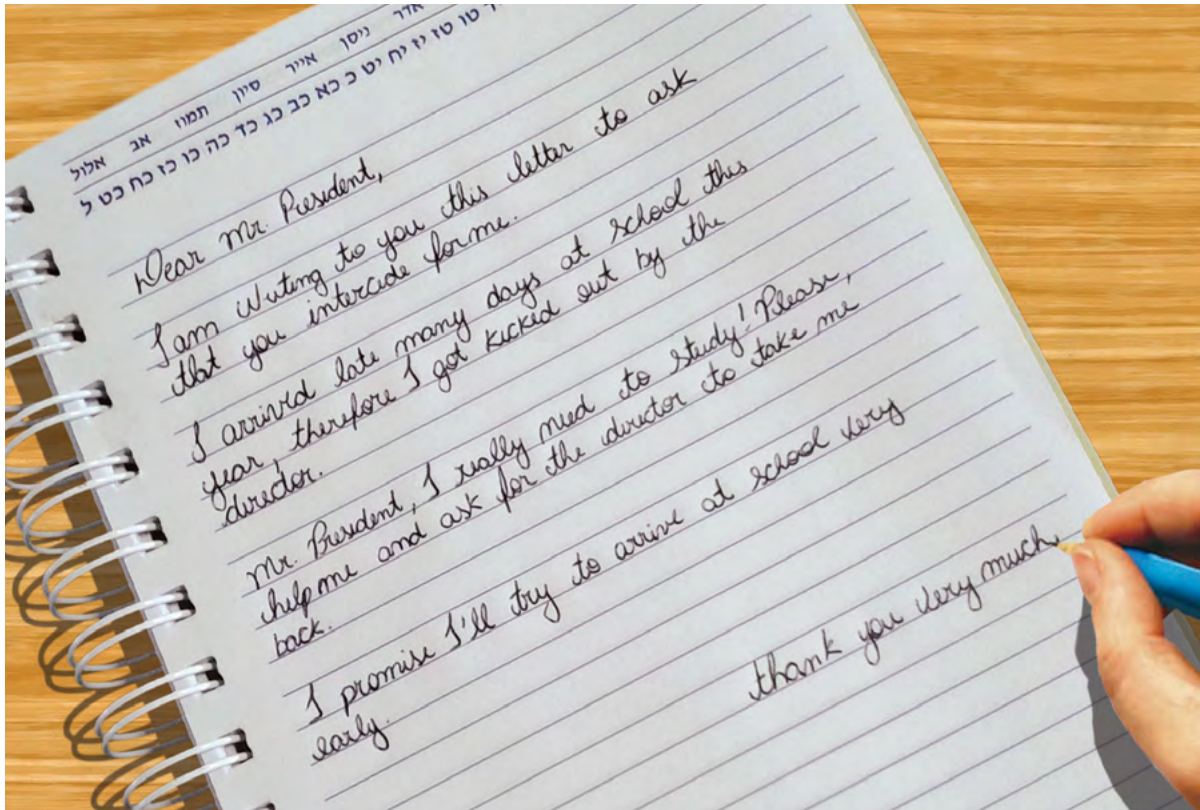 אדר ניסן אייר סיון תמוז אב אלול
טו טז יז יח יט כ כא כב כג כד כה כו כז כח כט ל
Dear Mr. President,
I am writing to you this letter to ask
that you intercede for me.
I arrived late many days at school this
year, therefore I got kicked out by the
director.
Mr. President, I really need to study! Please,
help me and ask for the director to take me
back.
I promise I'll try to arrive at school very
early.
thank you very much,